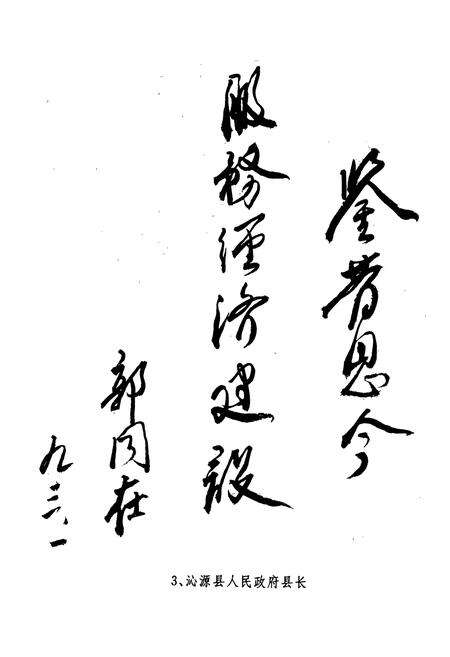 鉴昔思今
服務經济建設
郭同在
九三.一
3、沁源县人民政府县长